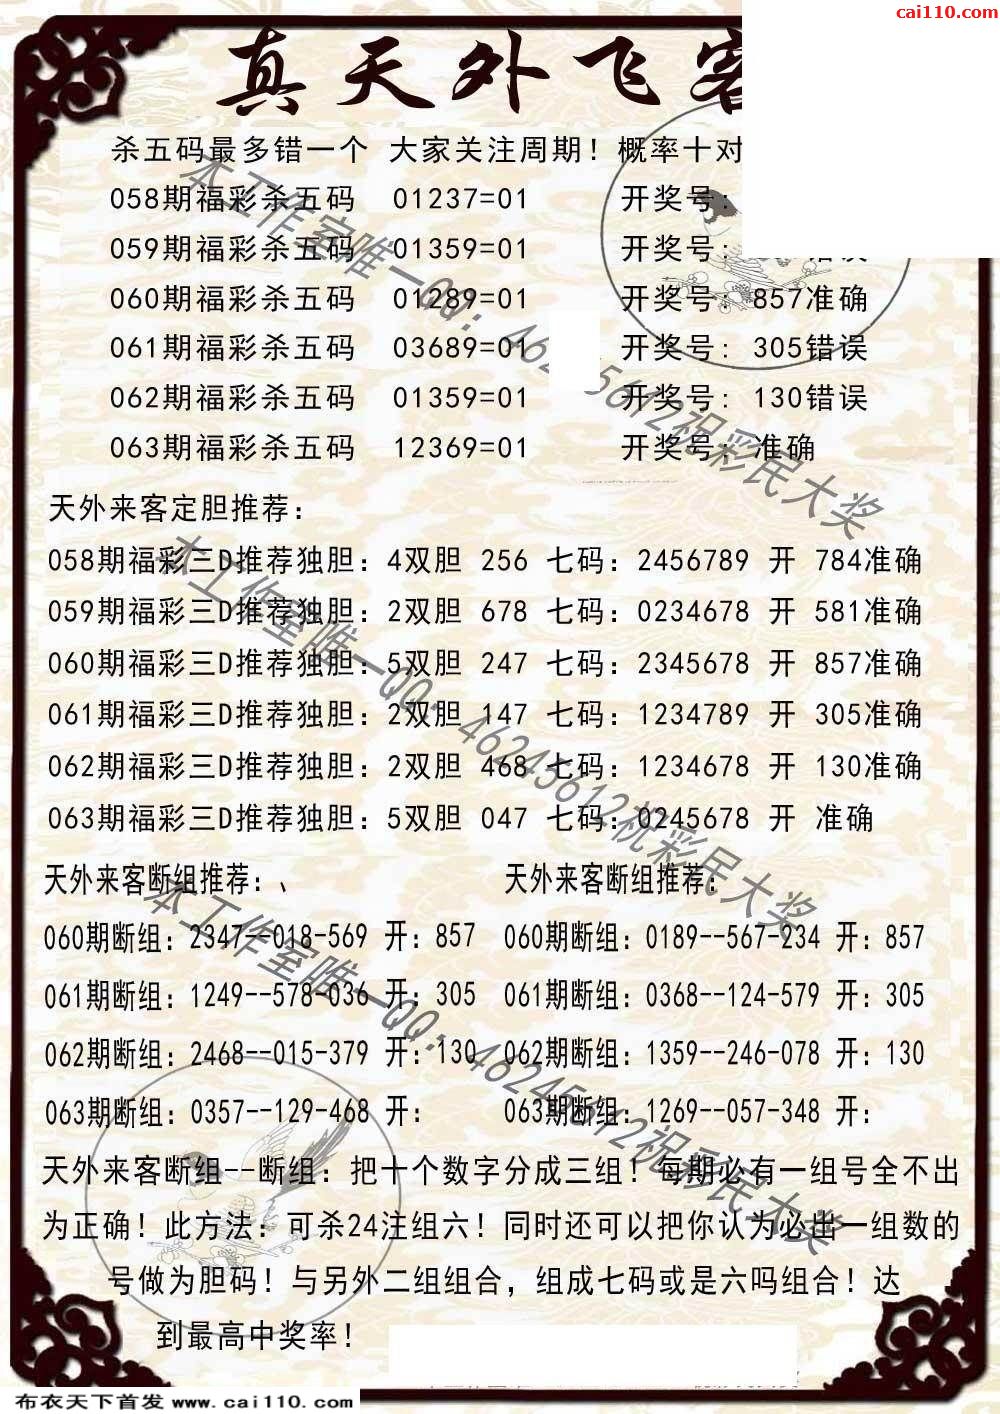 cai110.com
真天外飞客
杀五码最多错一个 大家关注周期！概率十对
058期福彩杀五码 01237=01 开奖号:
059期福彩杀五码 01359=01 开奖号: 错误
060期福彩杀五码 01289=01 开奖号: 857准确
061期福彩杀五码 03689=01 开奖号: 305错误
062期福彩杀五码 01359=01 开奖号: 130错误
063期福彩杀五码 12369=01 开奖号: 准确
天外来客定胆推荐:
058期福彩三D推荐独胆: 4双胆 256 七码: 2456789 开 784准确
059期福彩三D推荐独胆: 2双胆 678 七码: 0234678 开 581准确
060期福彩三D推荐独胆: 5双胆 247 七码: 2345678 开 857准确
061期福彩三D推荐独胆: 2双胆 147 七码: 1234789 开 305准确
062期福彩三D推荐独胆: 2双胆 468 七码: 1234678 开 130准确
063期福彩三D推荐独胆: 5双胆 047 七码: 0245678 开 准确
天外来客断组推荐:、 天外来客断组推荐:
060期断组: 2347--018-569 开: 857 060期断组: 0189--567-234 开: 857
061期断组: 1249--578-036 开: 305 061期断组: 0368--124-579 开: 305
062期断组: 2468--015-379 开: 130 062期断组: 1359--246-078 开: 130
063期断组: 0357--129-468 开: 063期断组: 1269--057-348 开:
天外来客断组--断组: 把十个数字分成三组！每期必有一组号全不出
为正确！此方法: 可杀24注组六！同时还可以把你认为必出一组数的
号做为胆码！与另外二组组合，组成七码或是六吗组合！达
到最高中奖率！
本工作室唯一QQ: 46245612祝彩民大奖
本工作室唯一QQ: 46245612祝彩民大奖
本工作室唯一QQ: 46245612祝彩民大奖
布衣天下首发 www.cai110.com